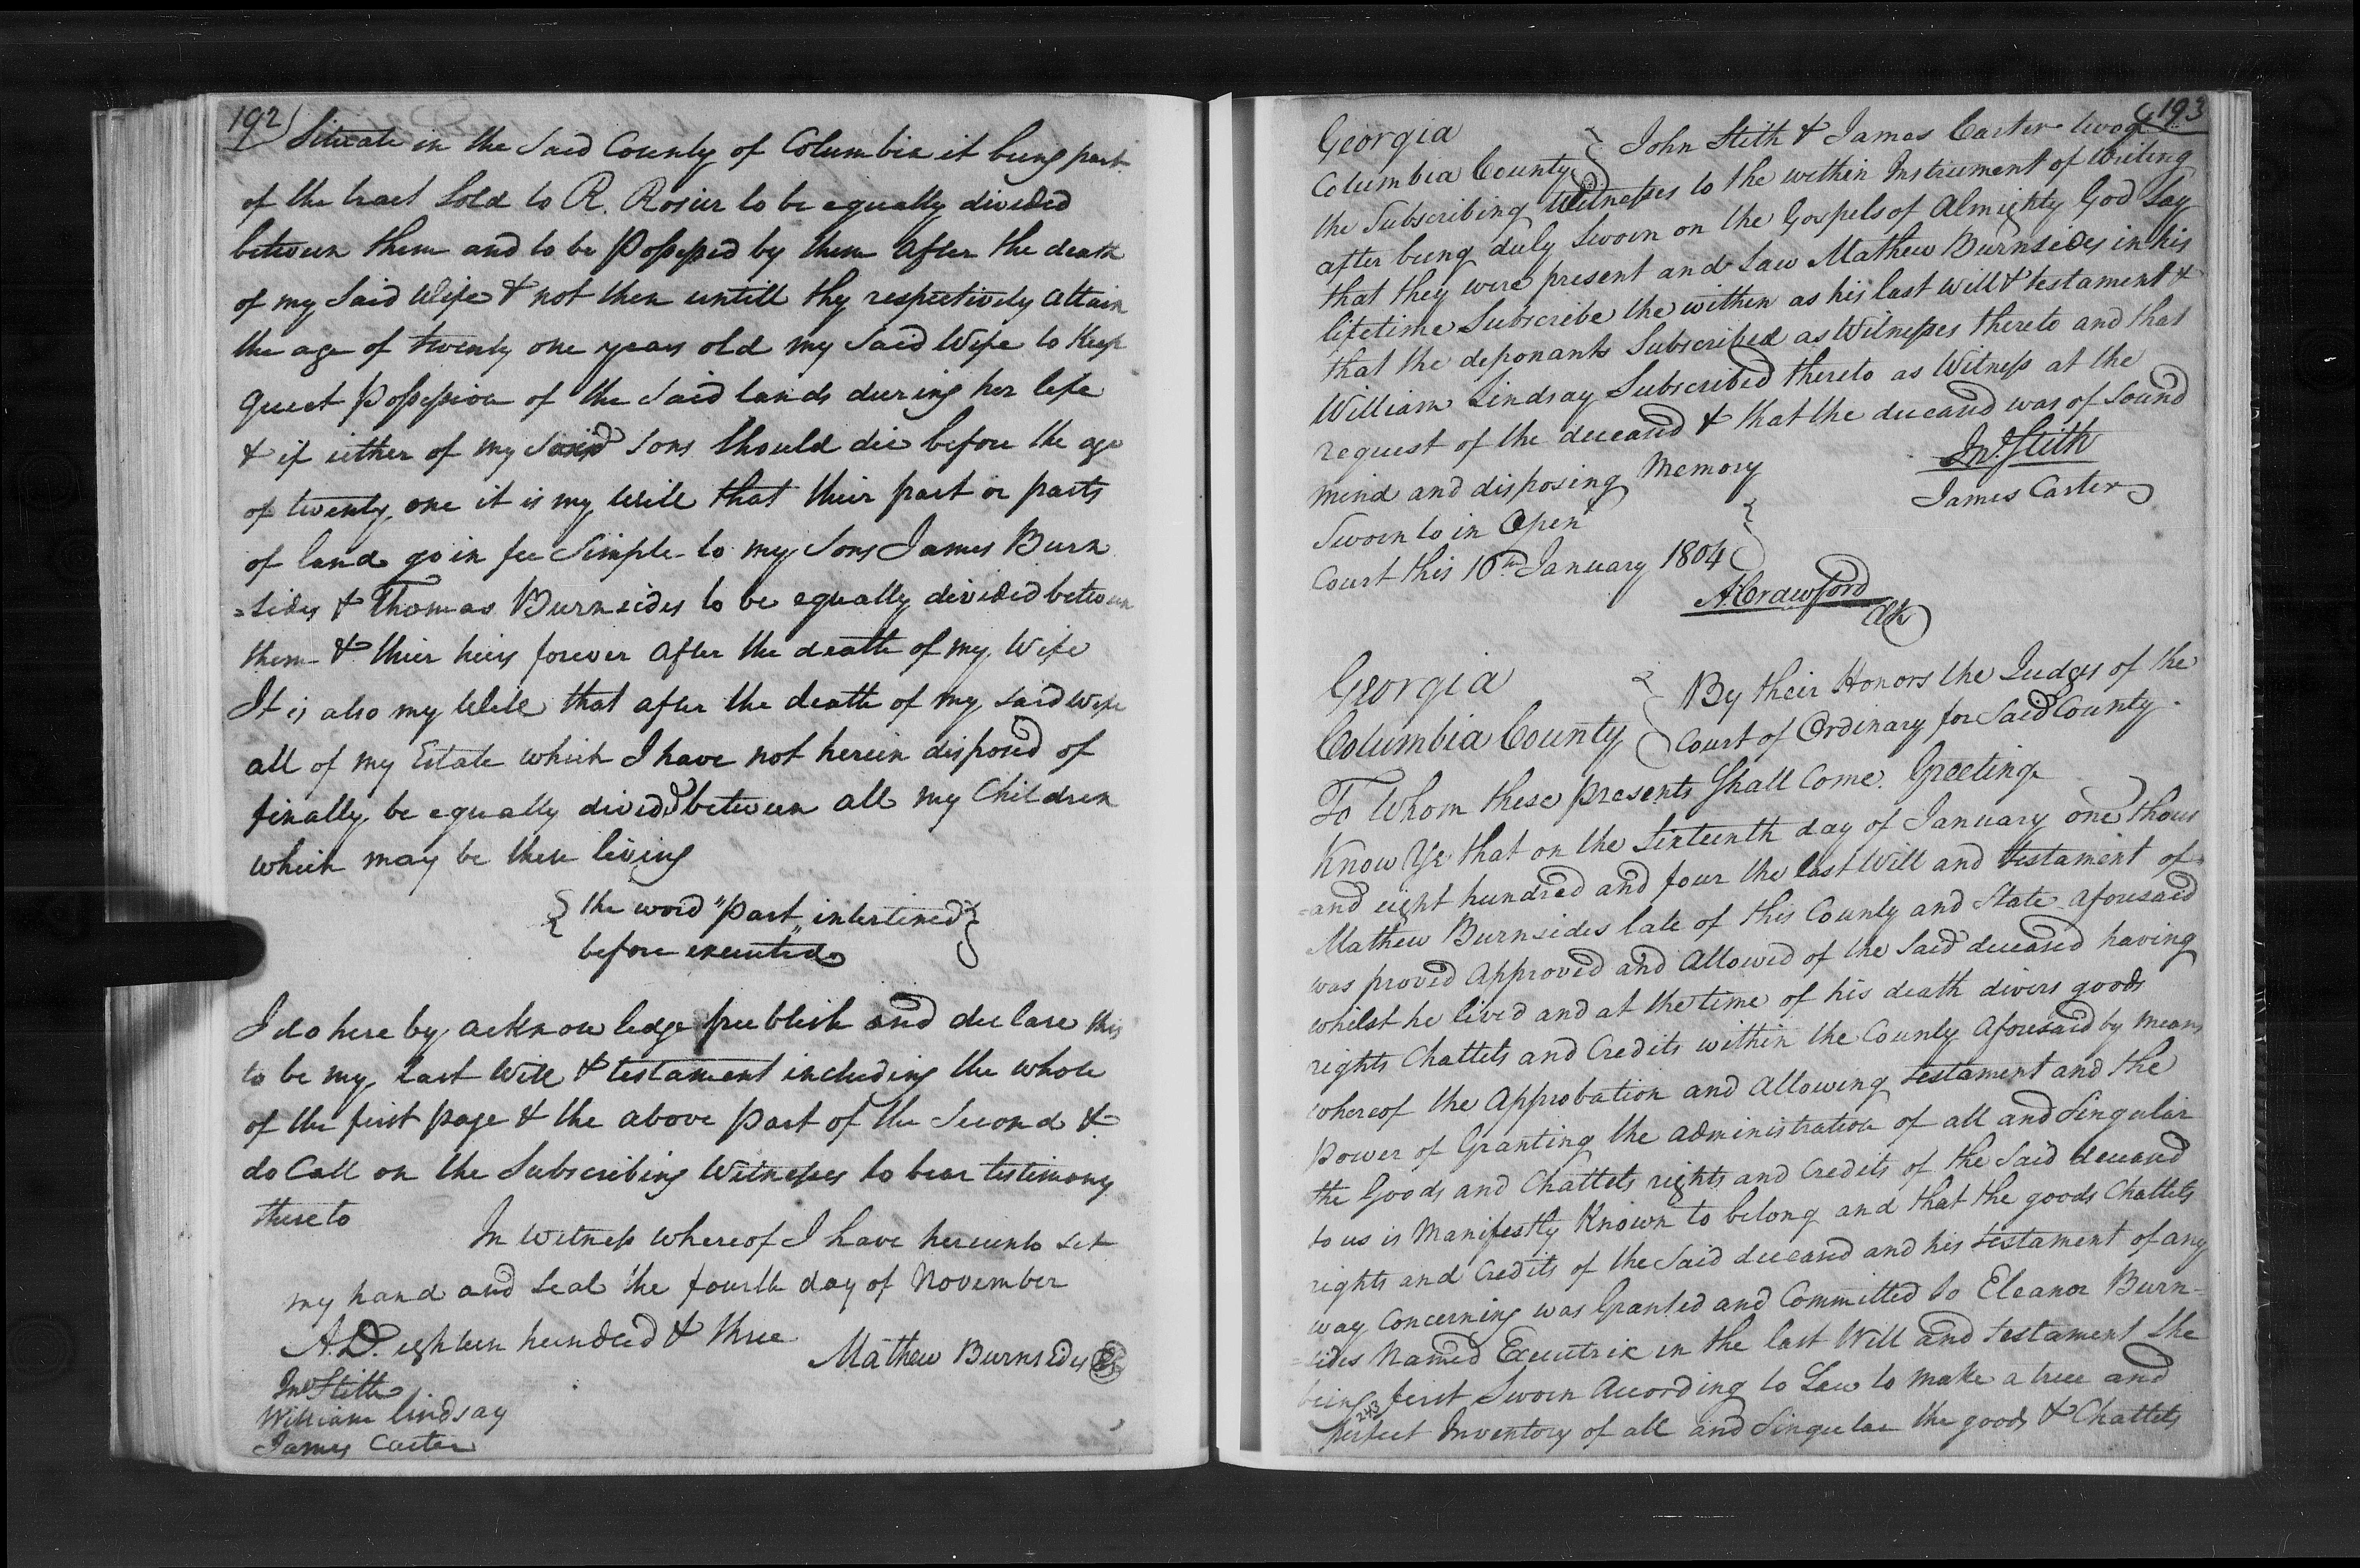 192)
Situate in the Said County of Columbia it being part
of the tract Sold to R. Rosier to be equally divided
between them and to be Possessed by them After the death
of my Said Wife & not then untill thy respectively Attain
the age of twenty one years old my Said Wife to Keep
quiet Possession of the Said lands during her life
& if either of my Said Sons Should die before the age
of twenty one it is my Will that their part or parts
of land go in fee Simple to my Sons James Burn
=sides & Thomas Burnsides to be equally divided between
them & their heirs forever After the death of my Wife
It is also my Will that after the death of my said Wife
all of my Estate which I have not herein disposed of
finally be equally divided between all my Children
which may be then living
{ the word "part" interlined }
before executed
I do here by acknowledge publish and declare this
to be my last Will & testament including the whole
of the first page & the above part of the Second &
do Call on the Subscribing Witnesses to bear testimony
thereto
In Witness whereof I have hereunto set
my hand and Seal the fourth day of November
A.D. eighteen hundred & three
Mathew Burnsides
Jno Stith
William Lindsay
James Carter
193
Georgia
Columbia County } John Stith & James Carter two of
the Subscribing Witnesses to the within Instrument of Writing
after being duly Sworn on the Gospels of Almighty God Say
that they were present and Saw Mathew Burnsides in his
lifetime Subscribe the within as his last Will & testament &
that the deponants Subscribed as Witnesses thereto and that
William Lindsay Subscribed thereto as Witness at the
request of the deceased & that the deceased was of Sound
mind and disposing Memory
Jno. Stith
James Carter
Sworn to in Open
Court this 16th January 1804 }
A. Crawford
Clk
Georgia
Columbia County } By their Honors the Judges of the
Court of Ordinary for Said County
To Whom these presents Shall Come. Greeting
Know Ye that on the Sixteenth day of January one thous
=and eight hundred and four the last Will and testament of
Mathew Burnsides late of this County and State aforesaid
was proved Approved and Allowed of the Said deceased having
whilst he lived and at the time of his death divers goods
rights Chattels and Credits within the County Aforesaid by means
whereof the Approbation and Allowing testament and the
Power of Granting the administration of all and Singular
the Goods and Chattels rights and Credits of the Said deceased
to us is Manifestly Known to belong and that the goods Chattels
rights and Credits of the Said deceased and his testament of any
way Concerning was Granted and Committed to Eleanor Burn-
=sides Named Executrix in the last Will and testament She
being first Sworn According to Law to make a true and
243
perfect Inventory of all and Singular the goods & Chattels